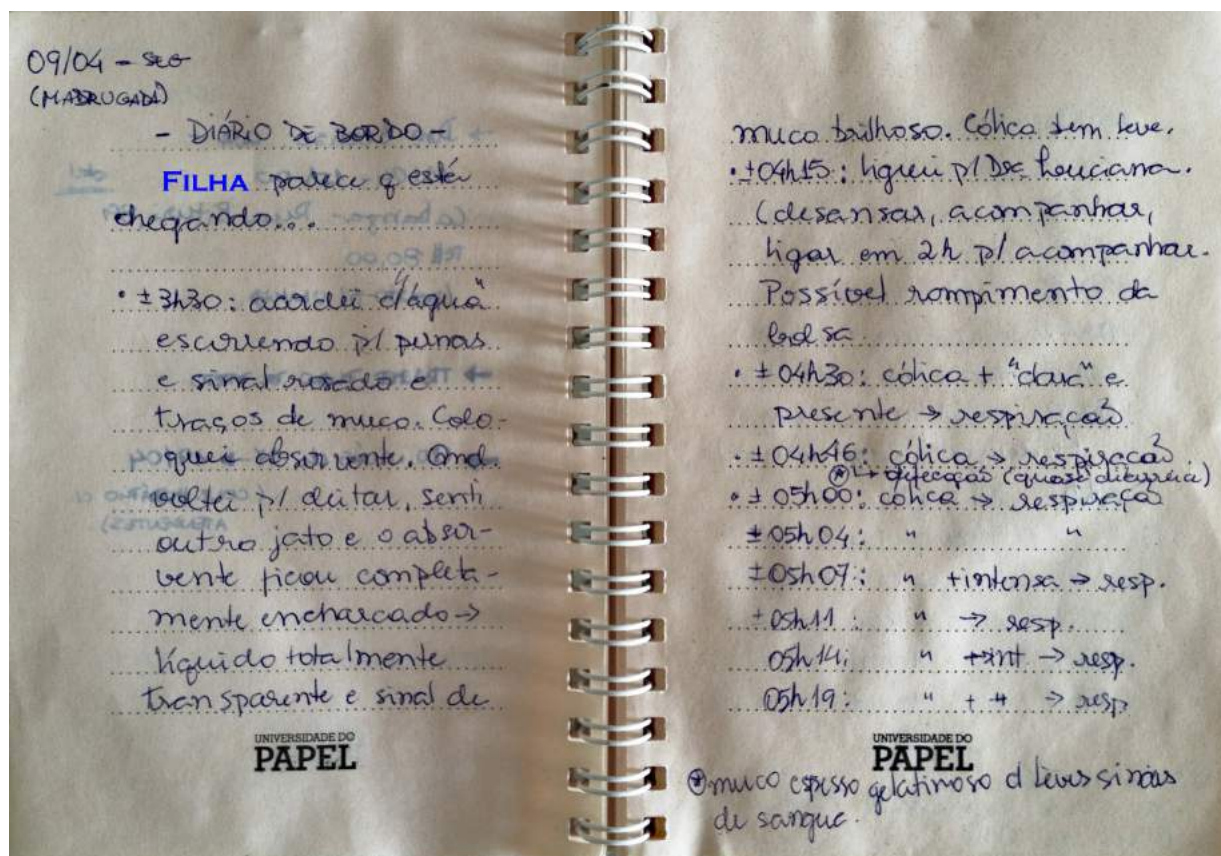 09/04 - SEG
(MADRUGADA)
- DIÁRIO DE BORDO -
FILHA parece q está
chegando...
• ± 3h30: acordei c/"água"
escorrendo p/ pernas
e sinal rosado e
traços de muco. Colo-
quei absorvente. Qnd.
voltei p/ deitar, senti
outro jato e o absor-
vente ficou completa-
mente encharcado →
líquido totalmente
transparente e sinal de
UNIVERSIDADE DO
PAPEL
muco brilhoso. Cólica bem leve.
• ±04h15: liguei p/ Dra Louciana.
(desansar, acompanhar,
ligar em 2h p/ acompanhar.
Possível rompimento da
bolsa
• ± 04h30: cólica + "clara" e
presente → respiração
• ± 04h46: cólica → respiração
⊛ ↳ defecação (quase diarréia)
• ± 05h00: cólica → respiração
± 05h04: " "
±05h07: " + intensa → resp.
± 05h11: " → resp.
05h14: " +int → resp.
05h19: " + # → resp
UNIVERSIDADE DO
PAPEL
⊛ muco espesso gelatinoso c/ leves sinais
de sangue.